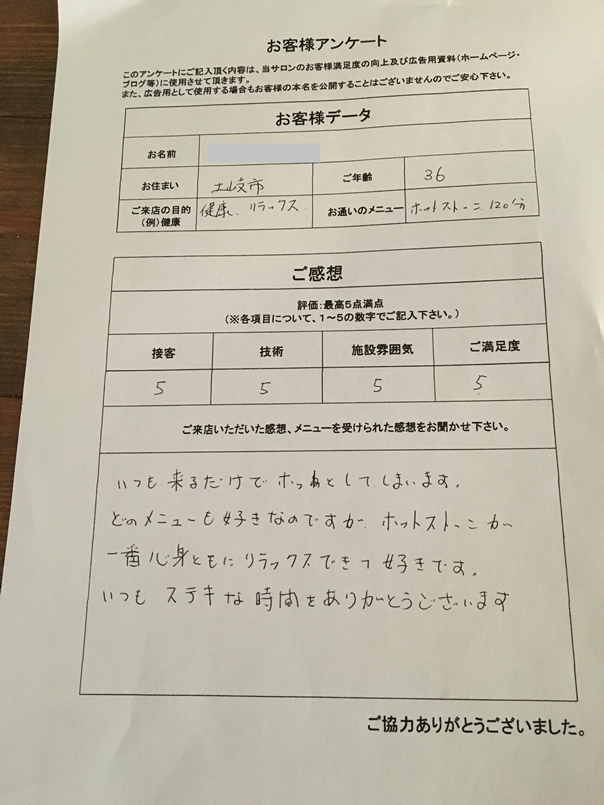 お客様アンケート
このアンケートにご記入頂く内容は、当サロンのお客様満足度の向上及び広告用資料(ホームページ・
ブログ等)に使用させて頂きます。
また、広告用として使用する場合もお客様の本名を公開することはございませんのでご安心下さい。
お客様データ
お名前
お住まい 土岐市 ご年齢 36
ご来店の目的 健康、リラックス お通いのメニュー ホットストーン 120分
(例)健康
ご感想
評価:最高5点満点
(※各項目について、1~5の数字でご記入下さい。)
接客 技術 施設雰囲気 ご満足度
5 5 5 5
ご来店いただいた感想、メニューを受けられた感想をお聞かせ下さい。
いつも来るだけでホッとしてしまいます。
どのメニューも好きなのですが、ホットストーンが
一番心身ともにリラックスできて好きです。
いつもステキな時間をありがとうございます
ご協力ありがとうございました。